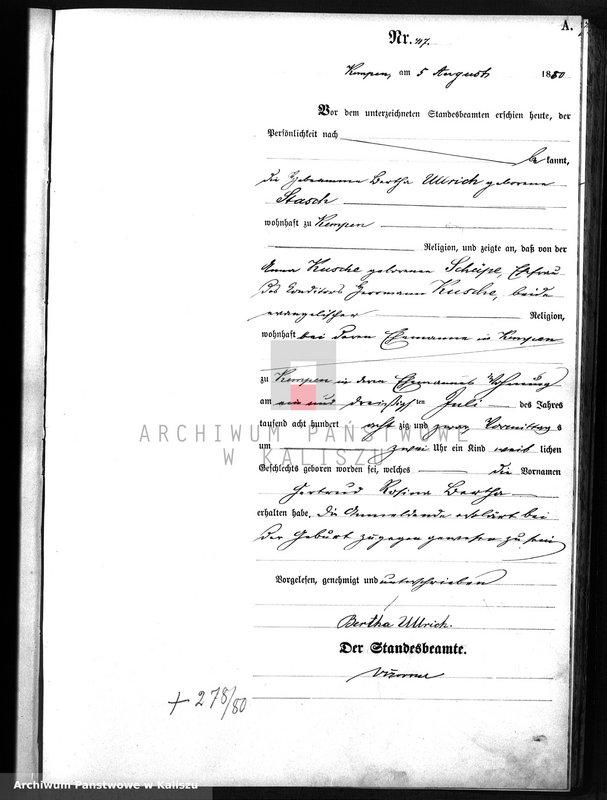 A.
Nr. 417.
Kempen, am 5 August 1880
Vor dem unterzeichneten Standesbeamten erschien heute, der
Persönlichkeit nach
be kannt,
die Hebeamme Bertha Ullrich geborene
Stasch
wohnhaft zu Kempen
Religion, und zeigte an, daß von der
Anna Kusche geborenen Scheipe, Ehefrau
des Conditors Herrmann Kusche, beide
evangelischer Religion,
wohnhaft bei deren Ehemanne in Kempen
zu Kempen in deren Ehemannes Wohnung
am ein und dreißigsten Juli des Jahres
tausend acht hundert acht zig und zwar Vormittags
um zwei Uhr ein Kind weib lichen
Geschlechts geboren worden sei, welches die Vornamen
Gertrud Rosina Bertha
erhalten habe. Die Anmeldende erklärt bei
der Geburt zugegen gewesen zu sein
Vorgelesen, genehmigt und unterschrieben
Bertha Ullrich.
Der Standesbeamte.
+ 278/80
ARCHIWUM PAŃSTWOWE
W KALISZU
Archiwum Państwowe w Kaliszu